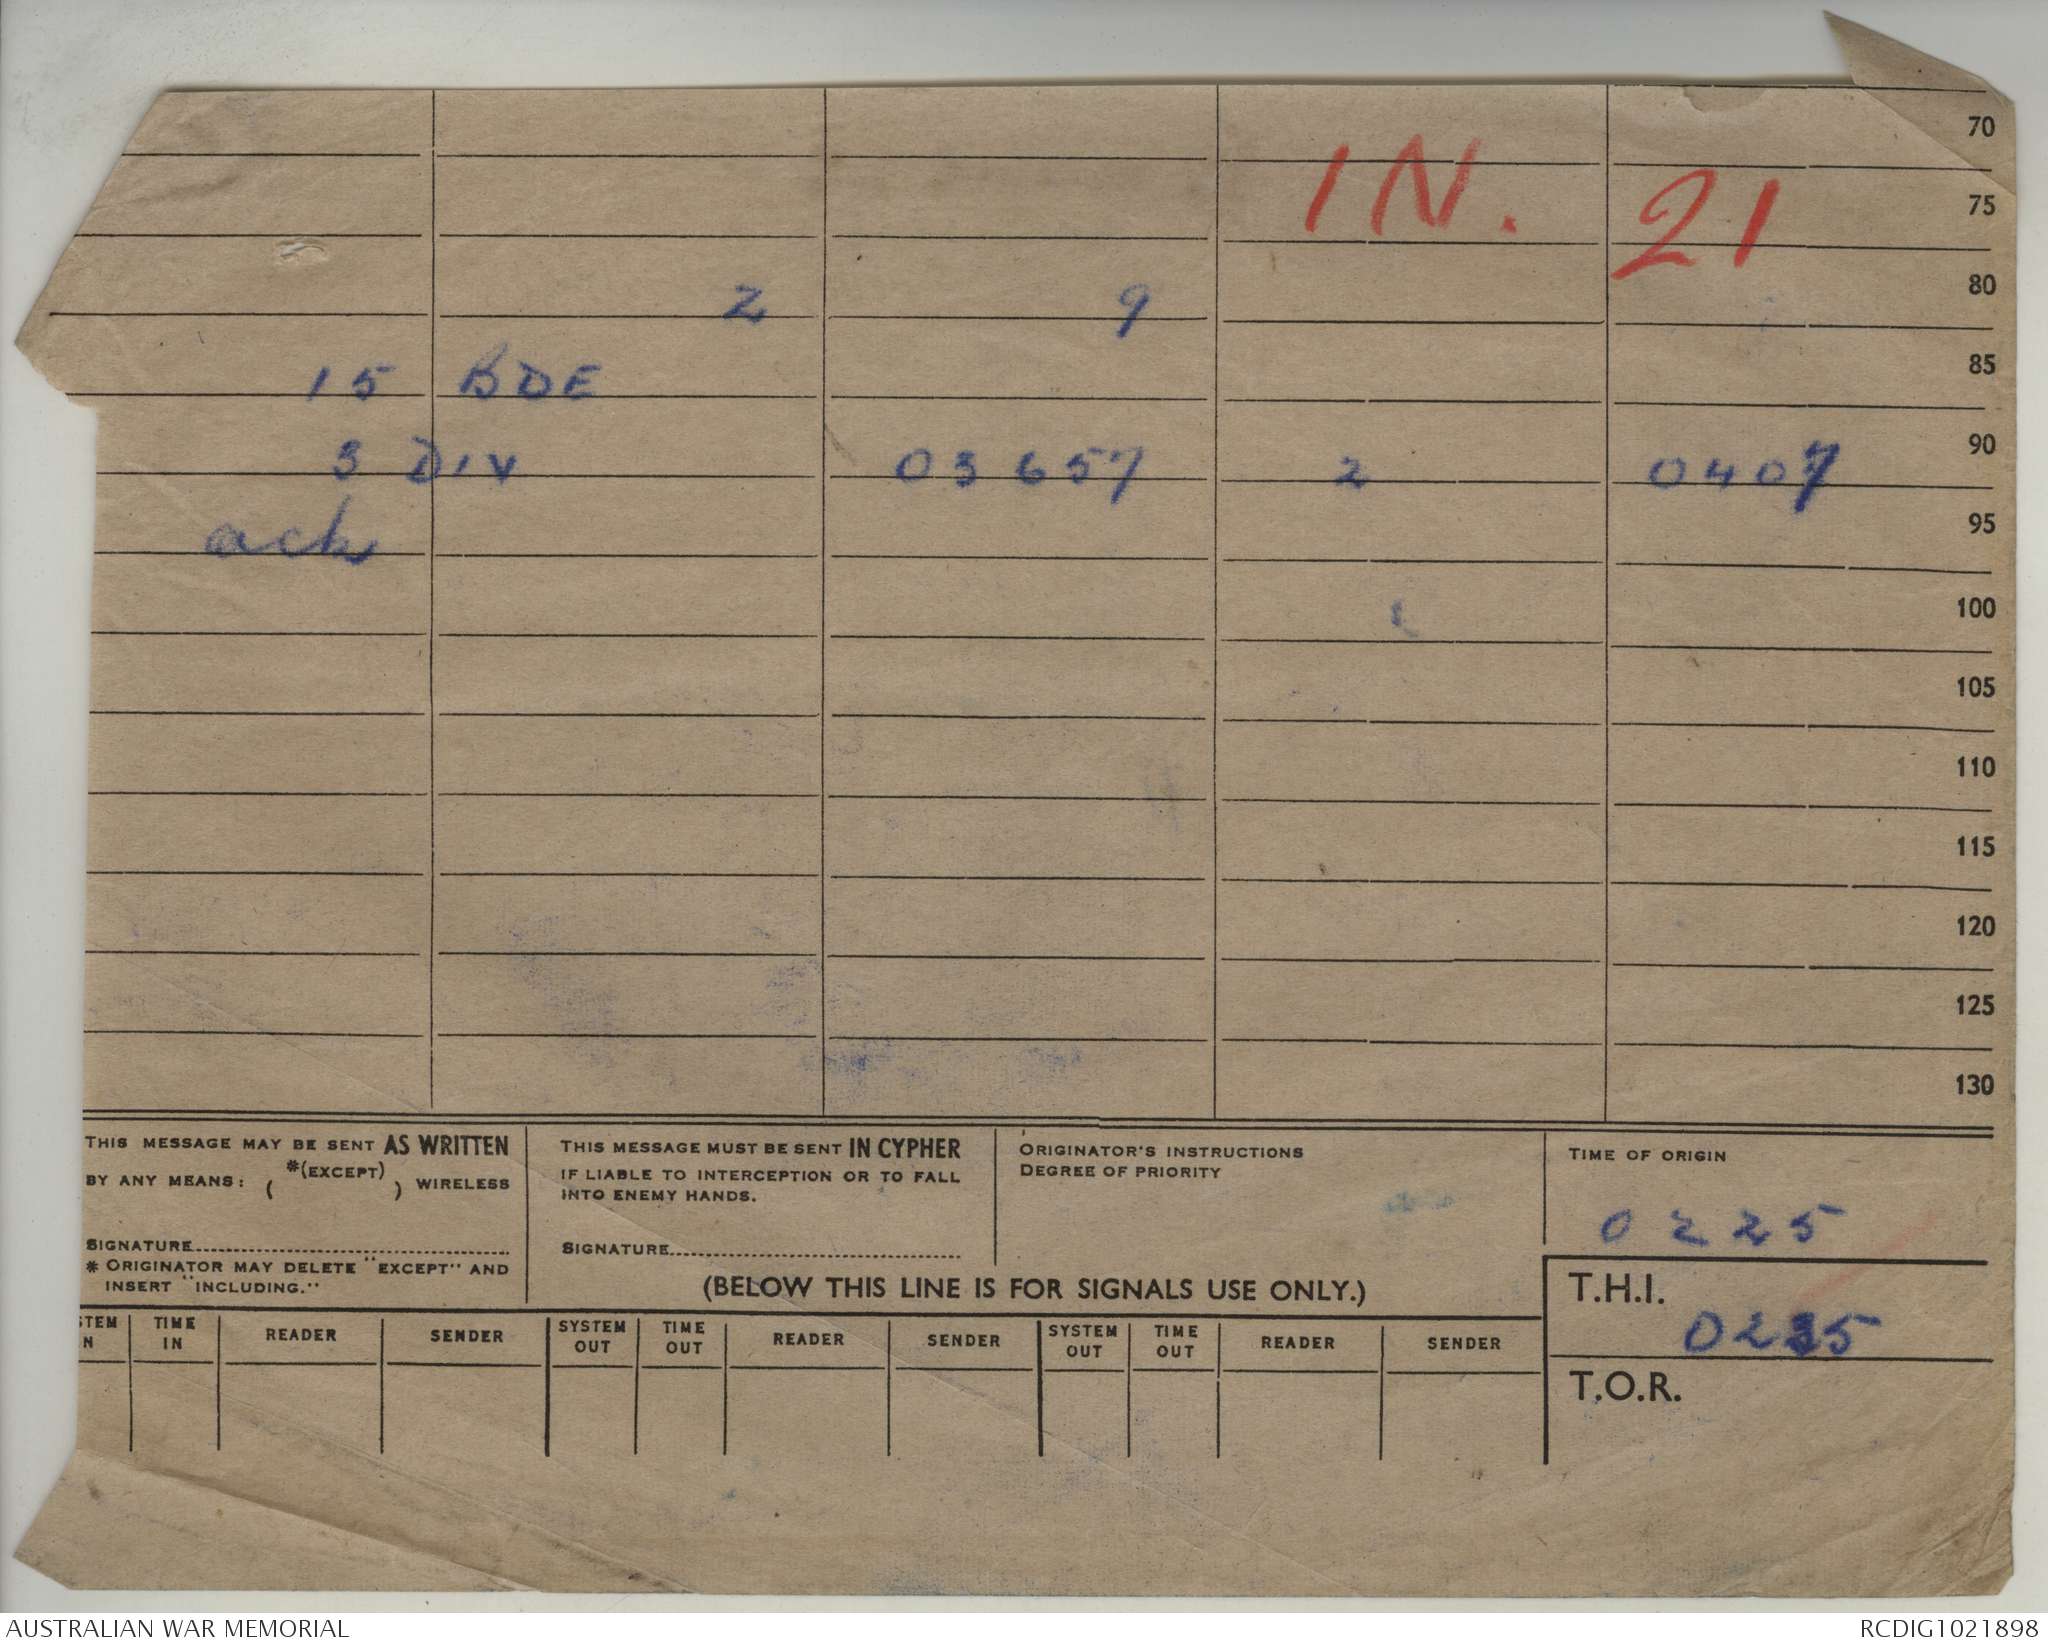 70
IN. 21 75
2 9 80
15 BDE 85
3 DIV 03657 2 0407 90
ack 95
100
105
110
115
120
125
130
THIS MESSAGE MAY BE SENT AS WRITTEN
BY ANY MEANS: ( *(EXCEPT) ) WIRELESS
SIGNATURE
* ORIGINATOR MAY DELETE "EXCEPT" AND
INSERT "INCLUDING."
THIS MESSAGE MUST BE SENT IN CYPHER
IF LIABLE TO INTERCEPTION OR TO FALL
INTO ENEMY HANDS.
SIGNATURE
ORIGINATOR'S INSTRUCTIONS
DEGREE OF PRIORITY
TIME OF ORIGIN
0225
(BELOW THIS LINE IS FOR SIGNALS USE ONLY.)
T.H.I.
T.O.R.
STEM N TIME IN READER SENDER SYSTEM OUT TIME OUT READER SENDER SYSTEM OUT TIME OUT READER SENDER
AUSTRALIAN WAR MEMORIAL RCDIG1021898